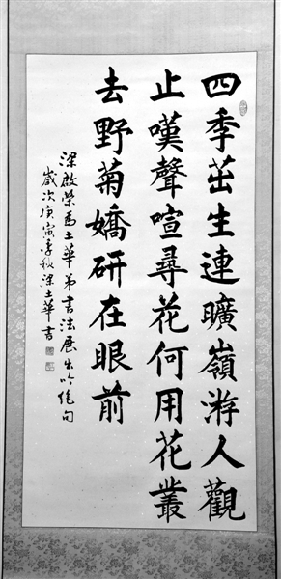 四季茁生連曠嶺游人觀
止嘆聲喧尋花何用花叢
去野菊嬌研在眼前
梁啟榮為土華弟書法展出吟絕句
歲次庚寅季秋梁土華書